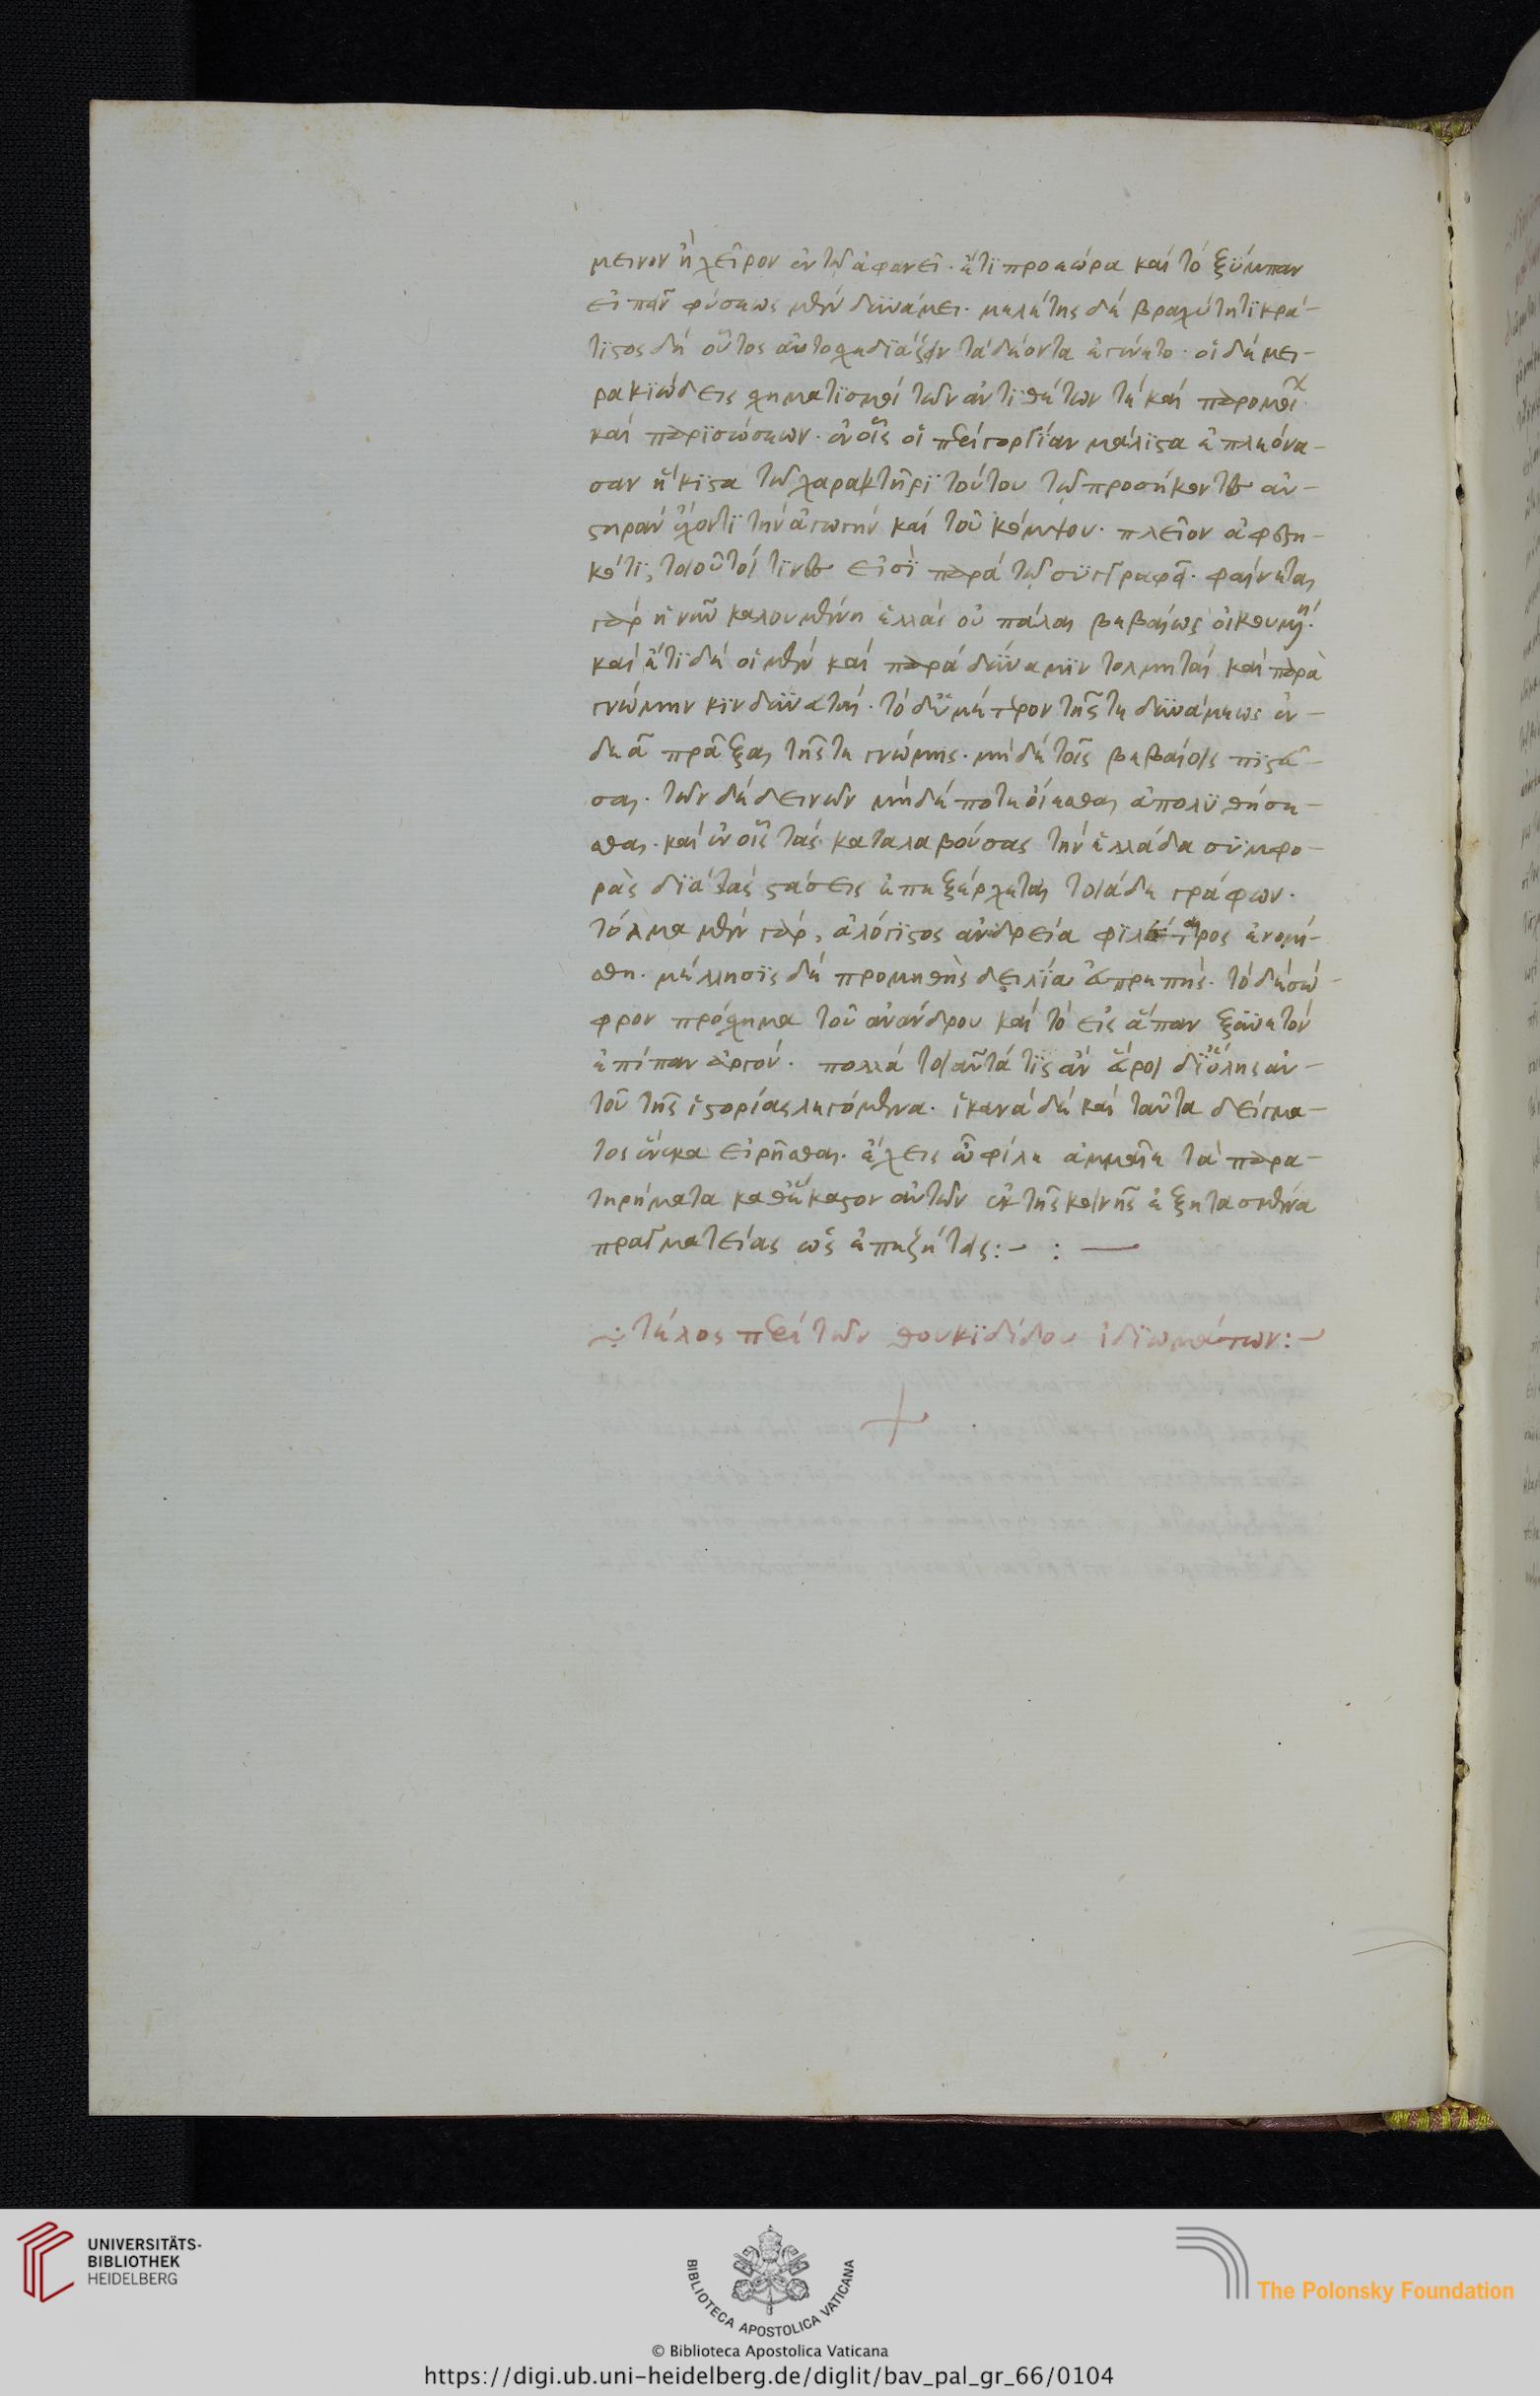 μεινον ἢ χεῖρον ἐν τῷ ἀφανεῖ. ἔτι προεώρα καὶ τὸ ξύμπαν
εἰπεῖν φύσεως μὲν δυνάμει. μελέτης δὲ βραχύτητι κρά-
τιστος δὴ οὗτος αὐτοσχεδιάζειν τὰ δέοντα ἐγένετο. οἱ δὲ μει-
ρακιώδεις σχηματισμοὶ τῶν ἀντιθέτων τὲ καὶ παρομοι
καὶ παρισώσεων. ἐν οἷς οἱ περὶ γοργίαν μάλιστα ἐπλεόνα-
σαν ἥκιστα τῷ χαρακτῆρι τούτου τῷ προσήκοντες αὐ-
στηρὰν ἔχοντι τὴν ἀγωγὴν καὶ τοῦ κόμψου. πλεῖον ἀφεστη-
κότι, τοιοῦτοί τινες εἰσὶ παρὰ τῷ συγγραφεῖ. φαίνεται
γὰρ ἡ νῦν καλουμένη ἑλλὰς οὐ πάλαι βεβαίως οἰκουμένη.
καὶ ἔτι δὲ οἱ μὲν καὶ παρὰ δύναμιν τολμηταὶ καὶ παρὰ
γνώμην κινδυνευταί. τὸ δ' ὑμέτερον τῆς τε δυνάμεως ἐν-
δεᾶ πρᾶξαι τῆς τε γνώμης. μηδὲ τοῖς βεβαίοις πιστεῦ-
σαι. τῶν δὲ δεινῶν μηδέποτε οἴεσθαι ἀπολυθήσε-
σθαι. καὶ ἐν οἷς τὰς καταλαβούσας τὴν ἑλλάδα συμφο-
ρὰς διὰ τὰς στάσεις ἐπεξέρχεται τοιάδε γράφων.
τόλμα μὲν γὰρ, ἀλόγιστος ἀνδρεία φιλέταιρος ἐνομί-
σθη. μέλλησις δὲ προμηθὴς δειλία εὐπρεπής. τὸ δὲ σώ-
φρον πρόσχημα τοῦ ἀνάνδρου καὶ τὸ εἰς ἅπαν ξυνετὸν
ἐπίπαν ἀργόν. πολλὰ τοιαῦτά τις ἂν εὕροι δι' ὅλης αὐ-
τοῦ τῆς ἱστορίας λεγόμενα. ἱκανὰ δὲ καὶ ταῦτα δείγμα-
τος ἕνεκα εἰρῆσθαι. ἔχεις ὦ φίλε ἀμμαῖε τὰ παρα-
τηρήματα καθ' ἕκαστον αὐτῶν ἐκ τῆς κοινῆς ἐξητασμένα
πραγματείας ὡς ἐπεζήτεις:– : —
⁓: τέλος περὶ τῶν θουκυδίδου ἰδιωμάτων:–
+
UNIVERSITÄTS-
BIBLIOTHEK
HEIDELBERG
BIBLIOTECA APOSTOLICA VATICANA
The Polonsky Foundation
© Biblioteca Apostolica Vaticana
https://digi.ub.uni-heidelberg.de/diglit/bav_pal_gr_66/0104